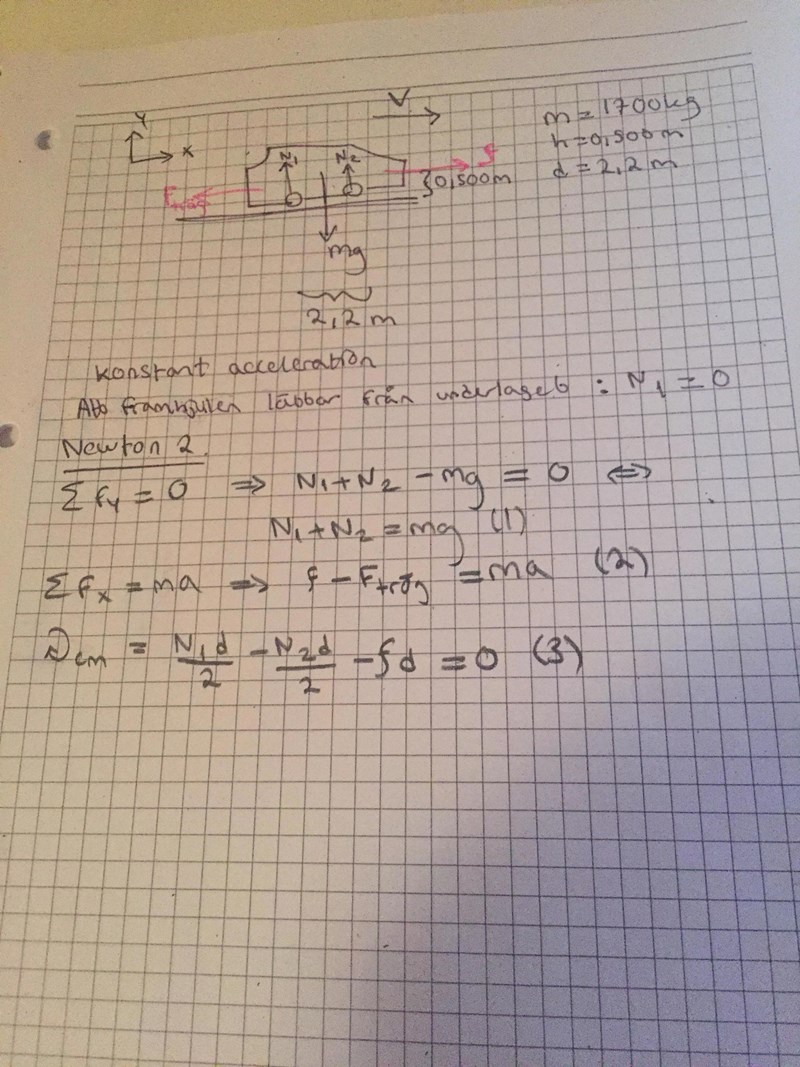 Y
V
m = 1700kg
x
N₁
N₂
f
h = 0,500m
Ftrög
}0,500m
d = 2,2 m
mg
2,2 m
konstant acceleration
Att framhjulen lättar från underlaget : N₁ = 0
Newton 2.
ΣFy = 0 ⇒ N₁ + N₂ - mg = 0 ⇔
N₁ + N₂ = mg (1)
ΣFx = ma ⇒ f - Ftrög = ma (2)
cm = N₁d/2 - N₂d/2 - fd = 0 (3)